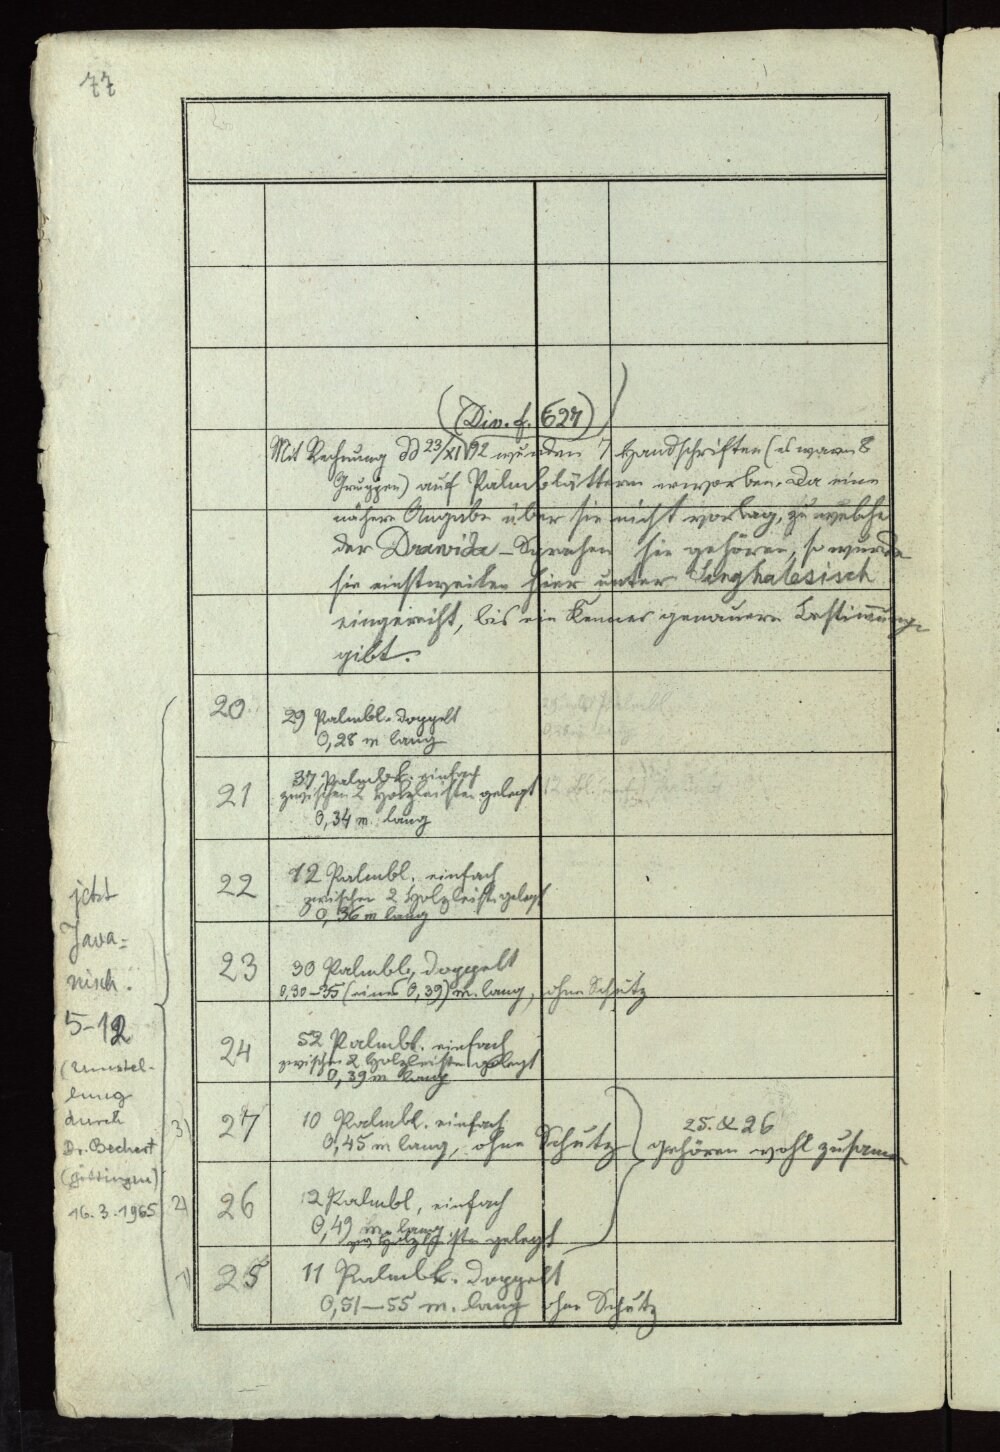 77
(Div. f. 627)
Mit Rechnung dd 23/XI 92 wurden 7 Handschriften (es waren 8
Gruppen) auf Palmblättern erworben. Da eine
nähere Angabe über sie nicht vorlag, zu welche
der Drawida-Sprachen sie gehören, so wurde
sie einstweilen hier unter Singhalesisch
eingereiht, bis ein Kenner genauere Bestimmung
gibt.
20 29 Palmbl. doppelt
0,28 m lang
21 37 Palmbl. einfach
zwischen 2 Holzleisten gelegt
0,34 m. lang
22 12 Palmbl. einfach
zwischen 2 Holzleist. gelegt
0,36 m lang
23 30 Palmbl., doppelt
0,30–35 (eines 0,39) m. lang, ohne Schutz
24 52 Palmbl. einfach
zwischen 2 Holzleisten gelegt
0,39 m lang
3) 27 10 Palmbl. einfach
0,45 m lang, ohne Schutz
25. & 26
gehören wohl zusamm
2) 26 12 Palmbl, einfach
0,49 m. lang
zw Holzleisten gelegt
1) 25 11 Palmbl. doppelt
0,51–55 m. lang ohne Schutz
jetzt
Java=
nisch.
5–12
(Umstel-
lung
durch
Dr. Bechert
(Göttingen)
16.3.1965